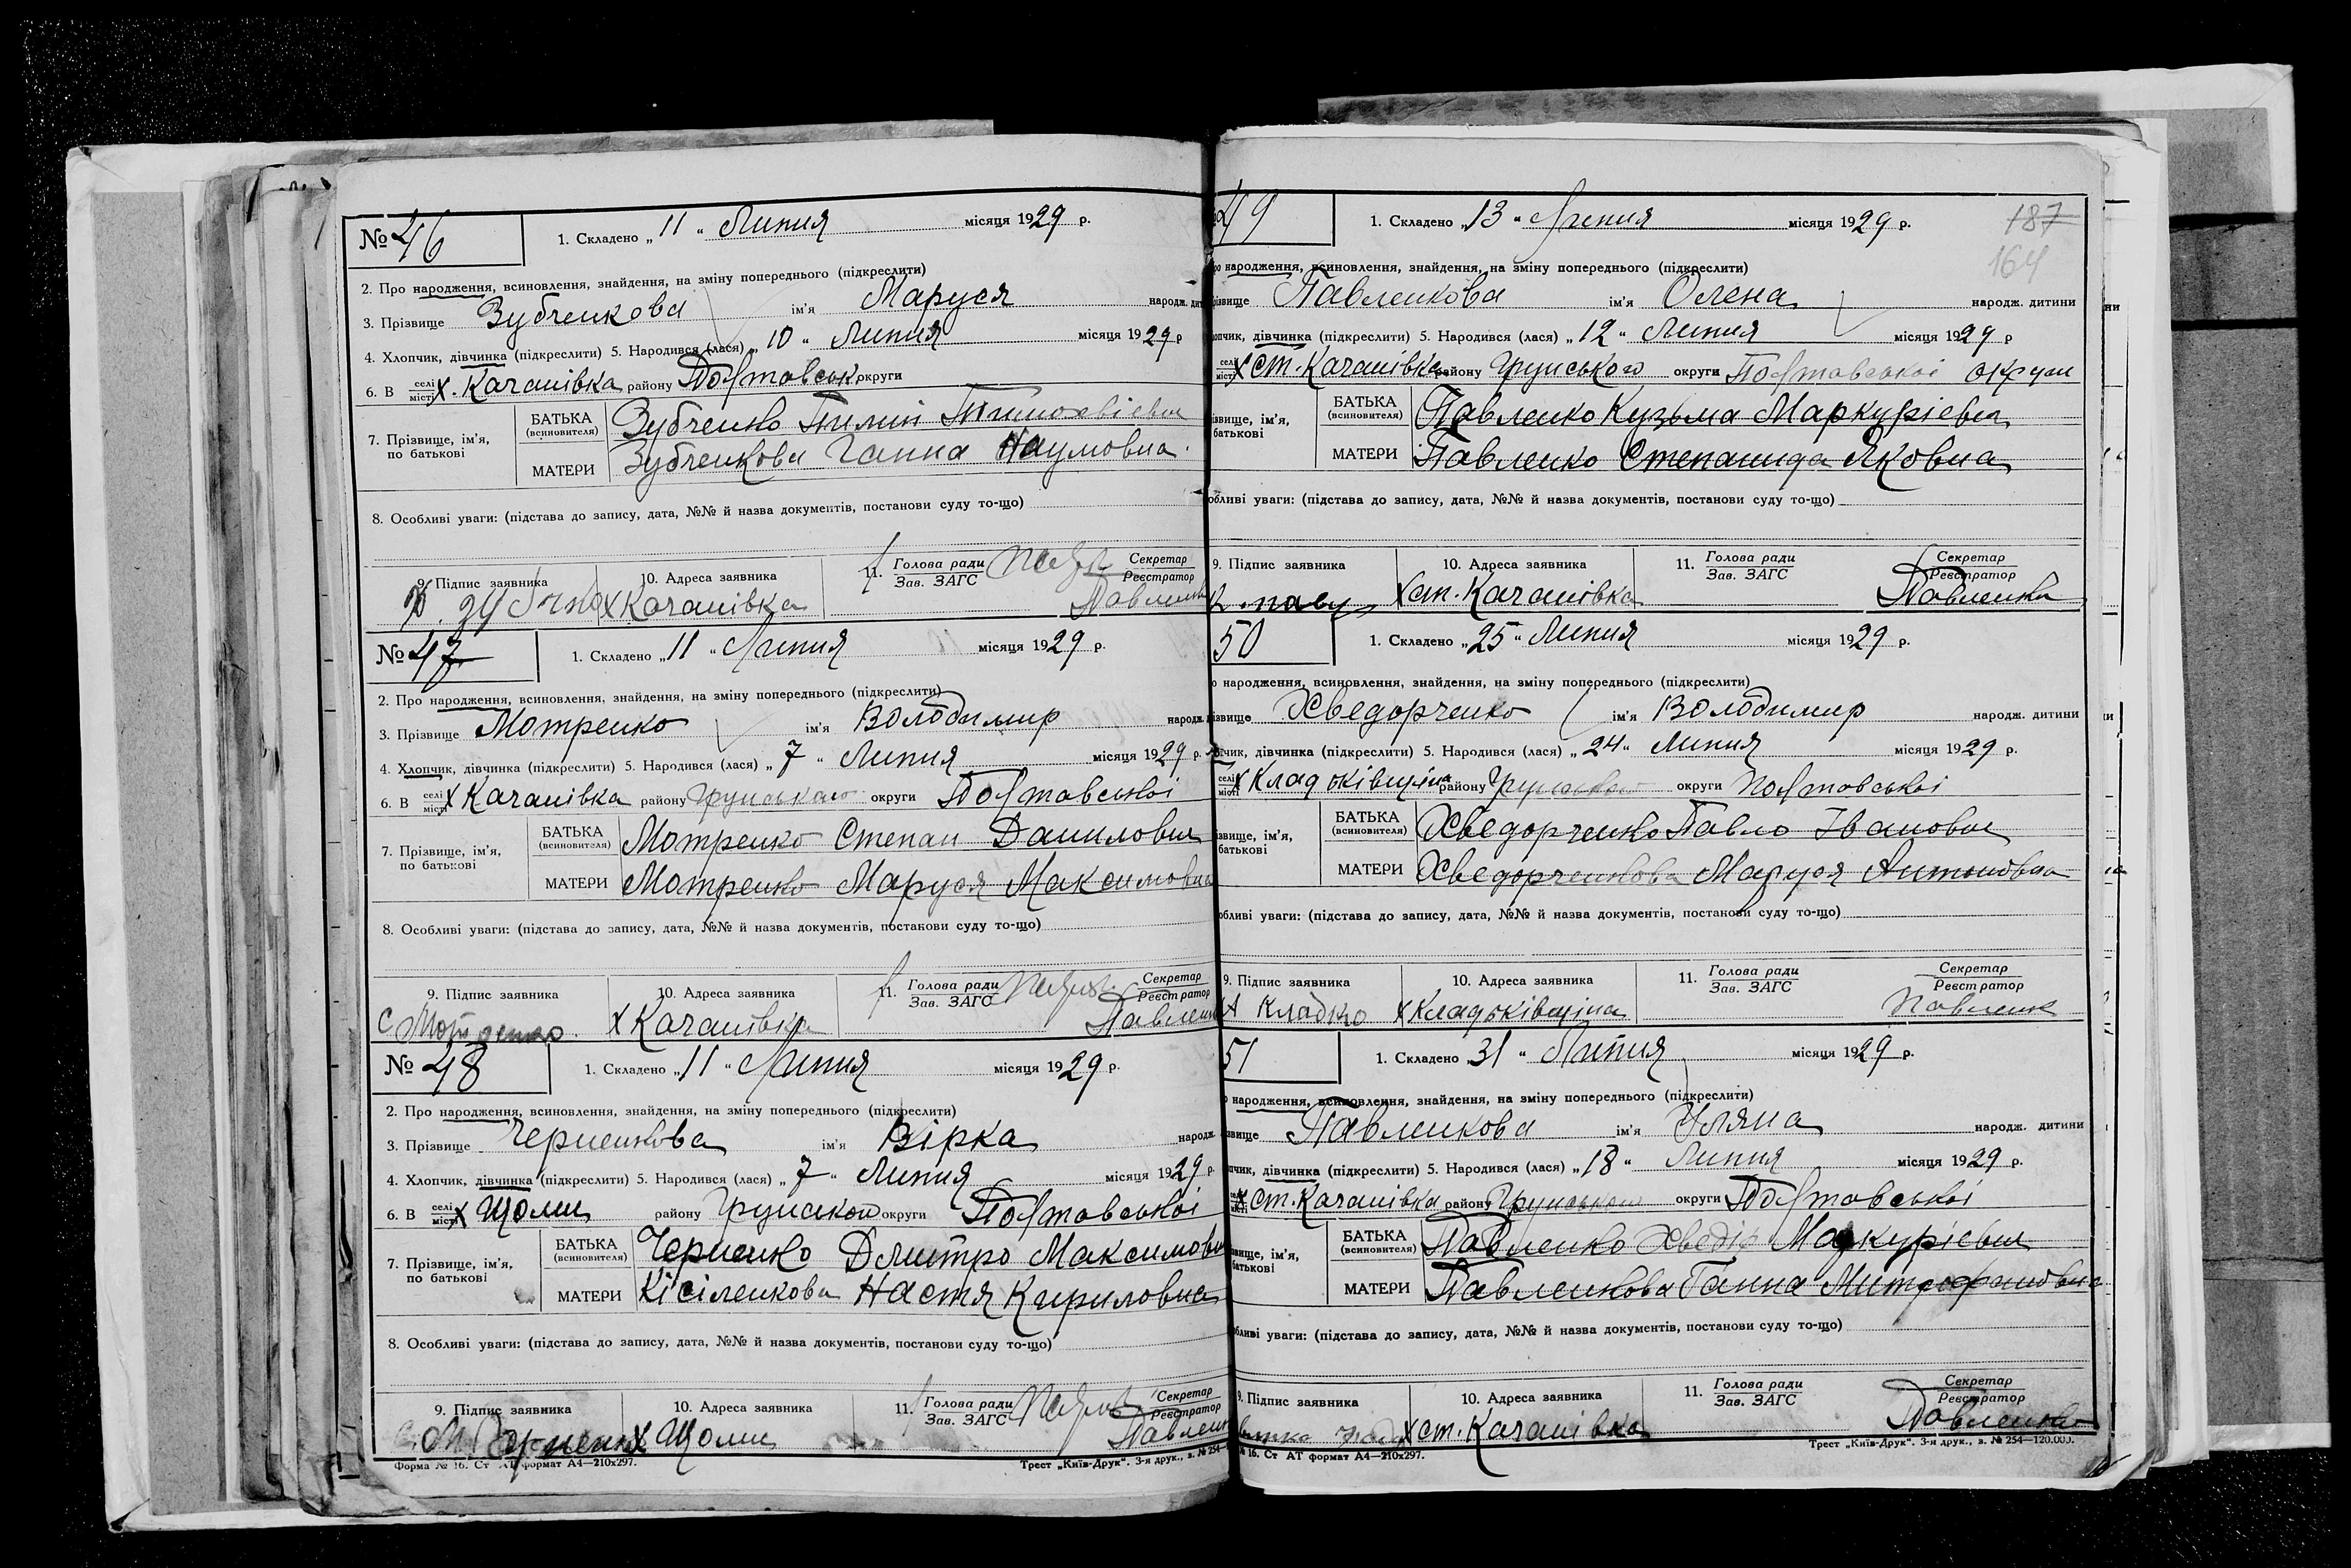 № 46
1. Складено „ 11 “ Липня місяця 1929 р.
2. Про народження, всиновлення, знайдення, на зміну попереднього (підкреслити)
3. Прізвище Зубченкова ім'я Маруся народж.
4. Хлопчик, дівчинка (підкреслити) 5. Народився (лася) „ 10 “ Липня місяця 1929 р
6. В селі місті х. Качанівка району Полтавськ. округи
7. Прізвище, ім'я, по батькові
БАТЬКА (всиновителя) Зубченко
МАТЕРИ Зубченкова Ганна Наумовна
8. Особливі уваги: (підстава до запису, дата, №№ й назва документів, постанови суду то-що)
9. Підпис заявника 10. Адреса заявника 11. Голова ради Зав. ЗАГС Секретар Реєстратор
х Качанівка
№ 47
1. Складено „ 11 “ Липня місяця 1929 р.
2. Про народження, всиновлення, знайдення, на зміну попереднього (підкреслити)
3. Прізвище Мотренко ім'я Володимир народж.
4. Хлопчик, дівчинка (підкреслити) 5. Народився (лася) „ 7 “ Липня місяця 1929 р.
6. В селі місті х Качанівка району Грунського округи Полтавської
7. Прізвище, ім'я, по батькові
БАТЬКА (всиновителя) Мотренко Степан Данилович
МАТЕРИ Мотренко Маруся Максимовна
8. Особливі уваги: (підстава до запису, дата, №№ й назва документів, постанови суду то-що)
9. Підпис заявника 10. Адреса заявника 11. Голова ради Зав. ЗАГС Секретар Реєстратор
х Качанівка
№ 48
1. Складено „ 11 “ Липня місяця 1929 р.
2. Про народження, всиновлення, знайдення, на зміну попереднього (підкреслити)
3. Прізвище Черненкова ім'я Вірка народж.
4. Хлопчик, дівчинка (підкреслити) 5. Народився (лася) „ 7 “ Липня місяця 1929 р.
6. В селі місті х Щоми району Грунського округи Полтавської
7. Прізвище, ім'я, по батькові
БАТЬКА (всиновителя) Черненко Дмитро Максимович
МАТЕРИ Кісіленкова Настя Кириловна
8. Особливі уваги: (підстава до запису, дата, №№ й назва документів, постанови суду то-що)
9. Підпис заявника 10. Адреса заявника 11. Голова ради Зав. ЗАГС Секретар Реєстратор
х Щоми
Форма № 16. Ст АТ формат А4—210х297. Трест „Київ-Друк“. 3-я друк., з. № 254—
49
1. Складено „ 13 “ Липня місяця 1929 р.
187
164
народження, всиновлення, знайдення, на зміну попереднього (підкреслити)
Павленкова ім'я Олена народж. дитини
дівчинка (підкреслити) 5. Народився (лася) „ 12 “ Липня місяця 1929 р
х ст. Качанівка району Грунського округи Полтавської округи
БАТЬКА (всиновителя) Павленко Кузьма Маркурієвич
МАТЕРИ Павленко Степанида Яковна
уваги: (підстава до запису, дата, №№ й назва документів, постанови суду то-що)
9. Підпис заявника 10. Адреса заявника 11. Голова ради Зав. ЗАГС Секретар Реєстратор
х ст. Качанівка Павленко
50
1. Складено „ 25 “ Липня місяця 1929 р.
народження, всиновлення, знайдення, на зміну попереднього (підкреслити)
Хведорченко ім'я Володимир народж. дитини
дівчинка (підкреслити) 5. Народився (лася) „ 24 “ Липня місяця 1929 р.
х Кладьківщина району Грунського округи Полтавської
БАТЬКА (всиновителя) Хведорченко Павло Іванович
МАТЕРИ Хведорченкова Маруся Антоновна
уваги: (підстава до запису, дата, №№ й назва документів, постанови суду то-що)
9. Підпис заявника 10. Адреса заявника 11. Голова ради Зав. ЗАГС Секретар Реєстратор
А Кладко х Кладьківщина Павленко
51
1. Складено „ 31 “ Липня місяця 1929 р.
народження, всиновлення, знайдення, на зміну попереднього (підкреслити)
Павленкова ім'я Уляна народж. дитини
дівчинка (підкреслити) 5. Народився (лася) „ 18 “ Липня місяця 1929 р.
х ст. Качанівка району Грунського округи Полтавської
БАТЬКА (всиновителя) Павленко Хведір Маркурієвич
МАТЕРИ Павленкова Ганна Митрофановна
уваги: (підстава до запису, дата, №№ й назва документів, постанови суду то-що)
9. Підпис заявника 10. Адреса заявника 11. Голова ради Зав. ЗАГС Секретар Реєстратор
х ст. Качанівка Павленко
№ 16. Ст АТ формат А4—210х297. Трест „Київ-Друк“. 3-я друк., з. № 254—120.000.